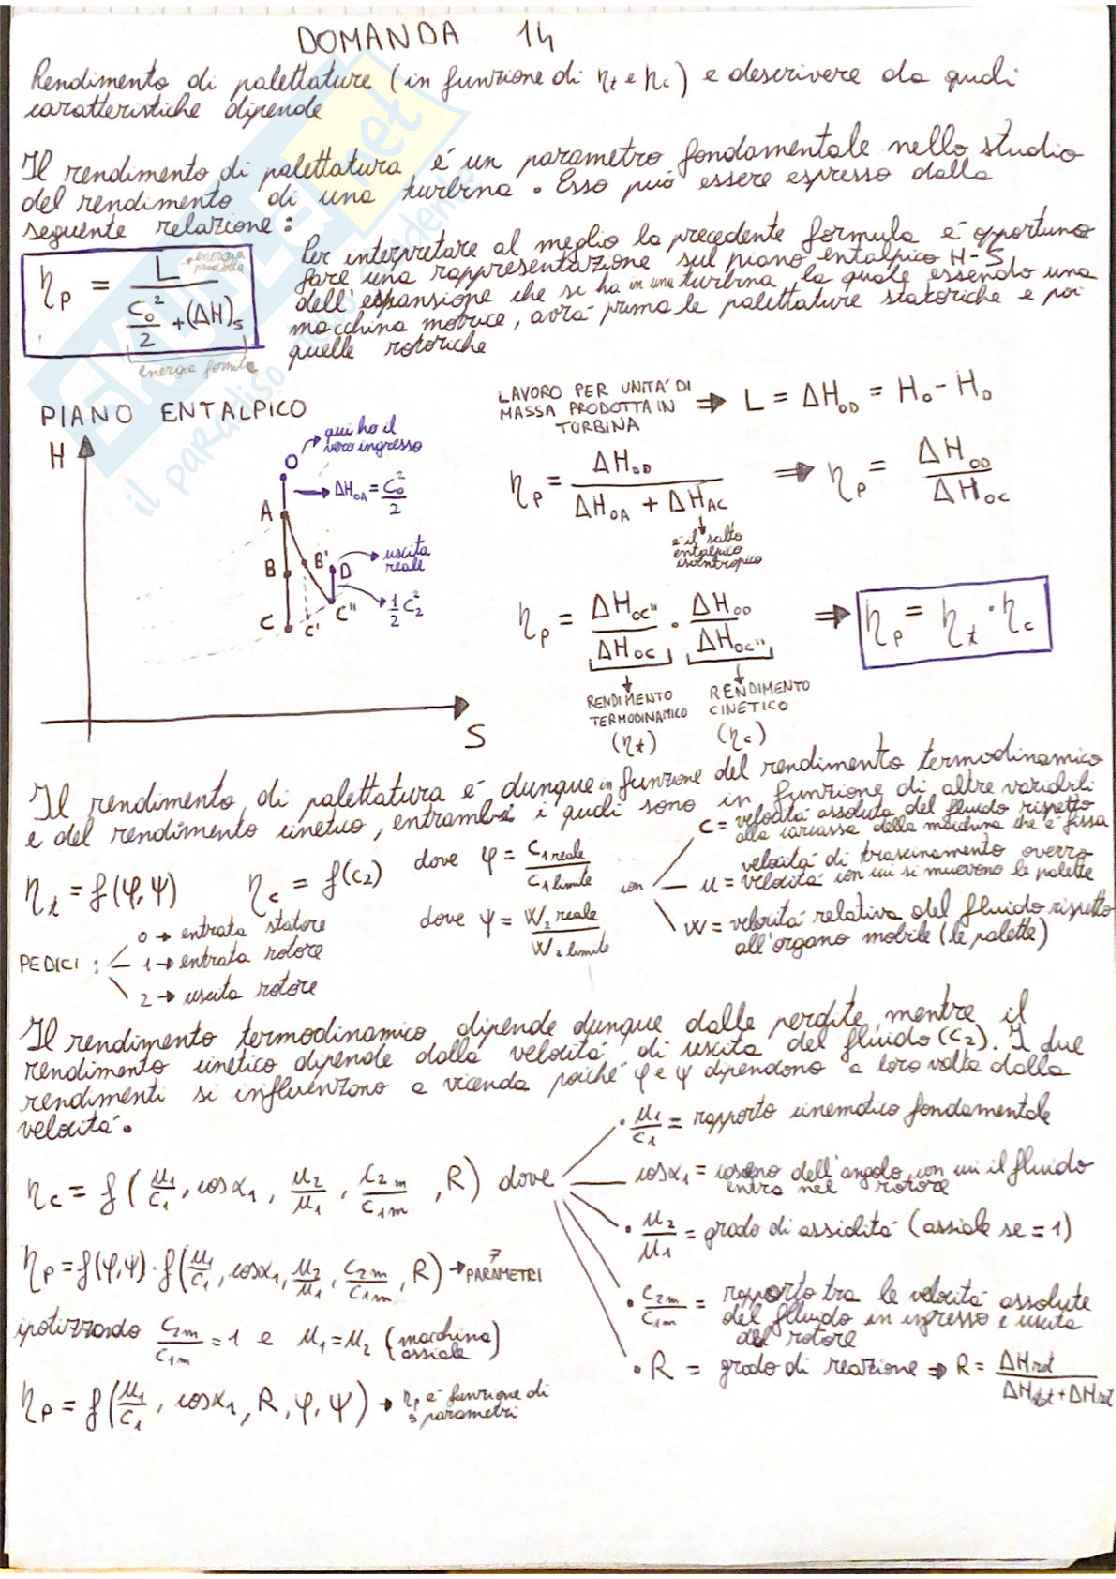 DOMANDA 14
Rendimento di palettature (in funzione di ηt e ηc) e descrivere da quali
caratteristiche dipende
Il rendimento di palettatura é un parametro fondamentale nello studio
del rendimento di una turbina. Esso può essere espresso dalla
seguente relazione:
ηp = L / (C₀²/2 + (ΔH)s)
energia prodotta
energia fornita
Per interpretare al meglio la precedente formula é opportuno
fare una rappresentazione sul piano entalpico H-S
dell'espansione che si ha in una turbina la quale essendo una
macchina motrice, avrà prima le palettature statoriche e poi
quelle rotoriche
PIANO ENTALPICO
H
S
qui ho il
vero ingresso
O
ΔH₀A = C₀²/2
A
B
B'
D
uscita
reale
C
C'
C''
1/2 C₂²
LAVORO PER UNITA' DI
MASSA PRODOTTA IN
TURBINA
⇒ L = ΔH₀D = H₀ - HD
ηp = ΔH₀D / (ΔH₀A + ΔHAC) ⇒ ηp = ΔH₀D / ΔH₀C
é il salto
entalpico
isoentropico
ηp = ΔH₀C'' / ΔH₀C · ΔH₀D / ΔH₀C'' ⇒ ηp = ηt · ηc
RENDIMENTO
TERMODINAMICO
(ηt)
RENDIMENTO
CINETICO
(ηc)
Il rendimento di palettatura é dunque in funzione del rendimento termodinamico
e del rendimento cinetico, entrambi i quali sono in funzione di altre variabili
ηt = f(φ,ψ) ηc = f(c₂) dove φ = C₁ reale / C₁ limite
dove ψ = W₂ reale / W₂ limite
con
C = velocità assoluta del fluido rispetto
alla carcassa della macchina che é fissa
velocità di trascinamento ovvero
u = velocità con cui si muovono le palette
W = velocità relativa del fluido rispetto
all'organo mobile (le palette)
PEDICI :
0 → entrata statore
1 → entrata rotore
2 → uscita rotore
Il rendimento termodinamico dipende dunque dalle perdite mentre il
rendimento cinetico dipende dalla velocità di uscita del fluido (C₂). I due
rendimenti si influenzano a vicenda poiché φ e ψ dipendono a loro volta dalla
velocità.
ηc = f (u₁/c₁, cosα₁, u₂/u₁, c₂m/c₁m, R) dove
· u₁/c₁ = rapporto cinematico fondamentale
cosα₁ = coseno dell'angolo con cui il fluido
entra nel rotore
· u₂/u₁ = grado di assialità (assiale se = 1)
· c₂m/c₁m = rapporto tra le velocità assolute
del fluido in ingresso e uscita
del rotore
· R = grado di reazione ⇒ R = ΔHrot / (ΔHstat + ΔHrot)
ηp = f(φ,ψ) · f(u₁/c₁, cosα₁, u₂/u₁, c₂m/c₁m, R) → 7
PARAMETRI
ipotizzando c₂m/c₁m = 1 e u₁ = u₂ (macchina
assiale)
ηp = f(u₁/c₁, cosα₁, R, φ, ψ) → ηp é funzione di
5 parametri